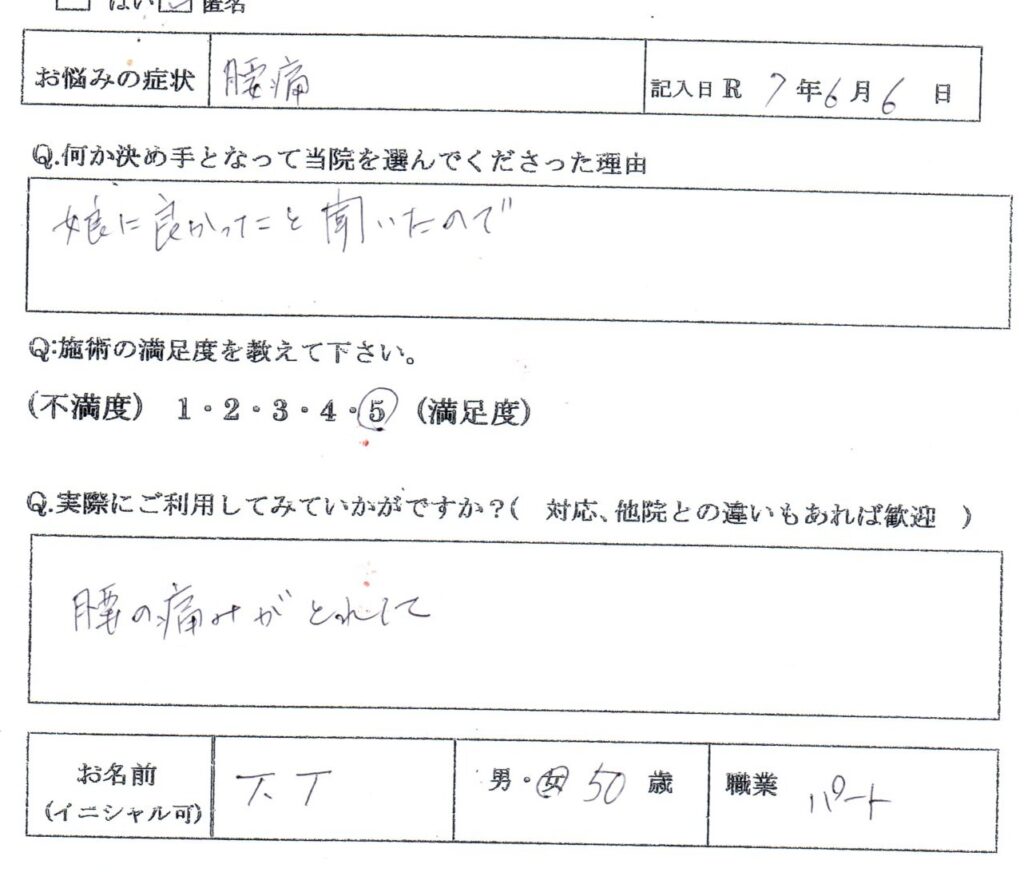 はい 匿名
お悩みの症状 腰痛 記入日 R 7年6月6日
Q.何か決め手となって当院を選んでくださった理由
娘に良かったこと聞いたので
Q:施術の満足度を教えて下さい。
(不満度) 1・2・3・4・5 (満足度)
Q.実際にご利用してみていかがですか?( 対応、他院との違いもあれば歓迎 )
腰の痛みがとれして
お名前 T.T 男・女 50歳 職業 パート
(イニシャル可)